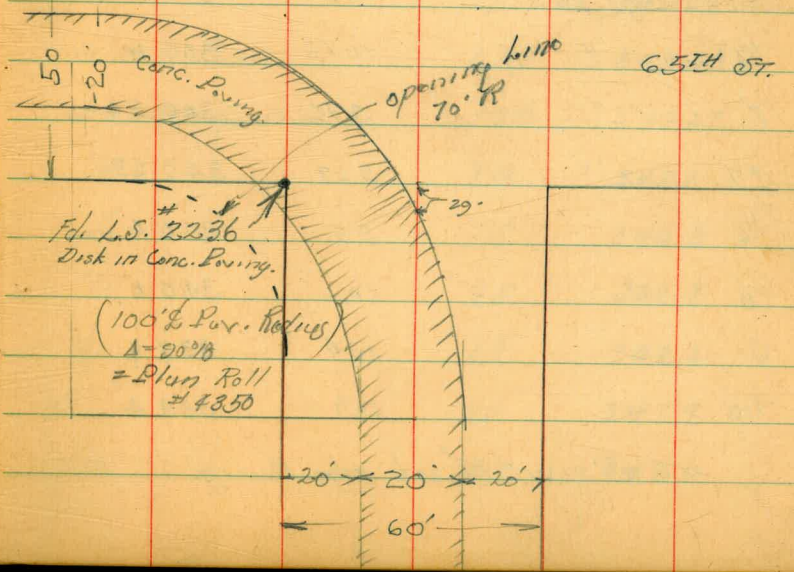 50
20'
Conc. Paving.
Opening Line
70' R
65TH ST.
29'
Fd. L.S. #2236
Disk in Conc. Paving.
(100' ℄ Pav. Radius)
Δ=90°
= Plan Roll
# 4350
20' 20' 20'
60'